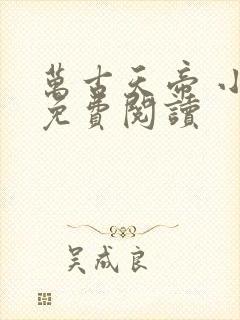 萬古天帝 小
免費閱讀
吴成良